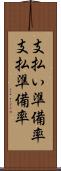 支払い準備率
支払準備率